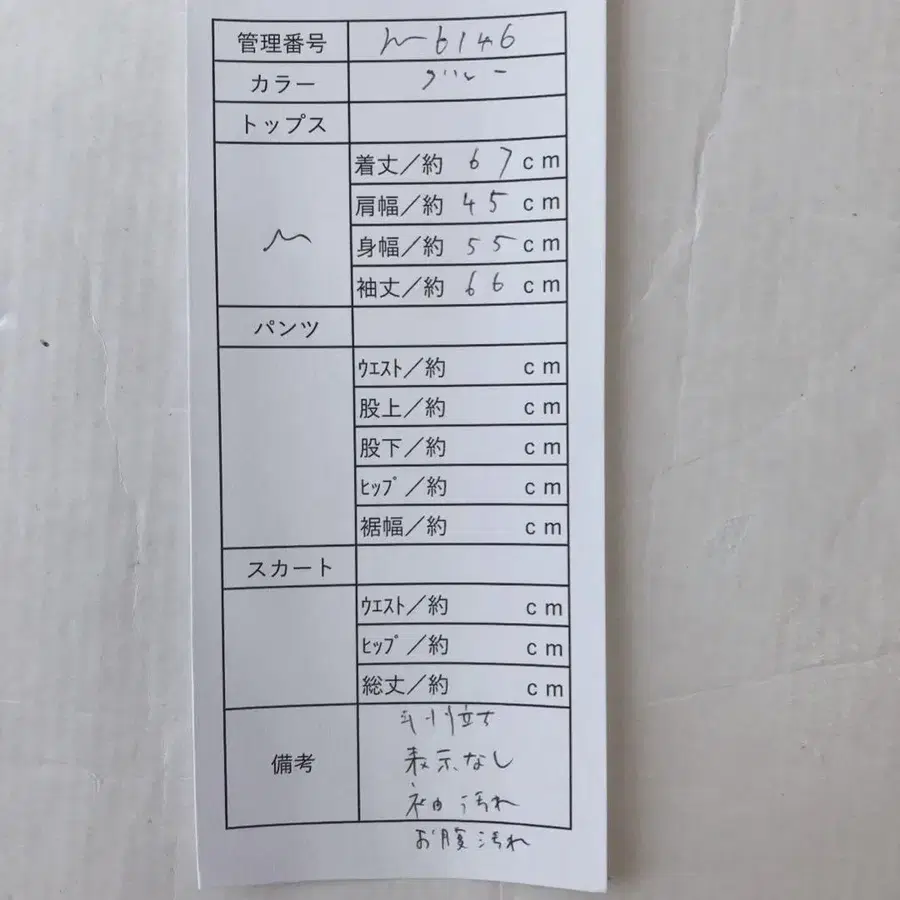 管理番号 m6146
カラー グレー
トップス
着丈／約 67 cm
肩幅／約 45 cm
M 身幅／約 55 cm
袖丈／約 66 cm
パンツ
ｳｴｽﾄ／約 cm
股上／約 cm
股下／約 cm
ﾋｯﾌﾟ／約 cm
裾幅／約 cm
スカート
ｳｴｽﾄ／約 cm
ﾋｯﾌﾟ／約 cm
総丈／約 cm
毛羽立ち
備考 表示なし
袖 汚れ
お腹汚れ